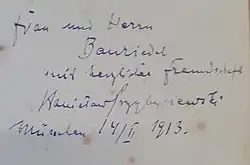 Frau und Herrn
Bauriedel
mit herzlicher Freundschaft
Stanisław Przybyszewski
München 14/II 1913.